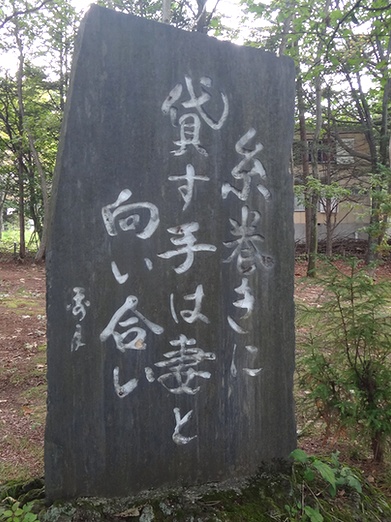 糸巻きに
貸す手は妻と
向い合い